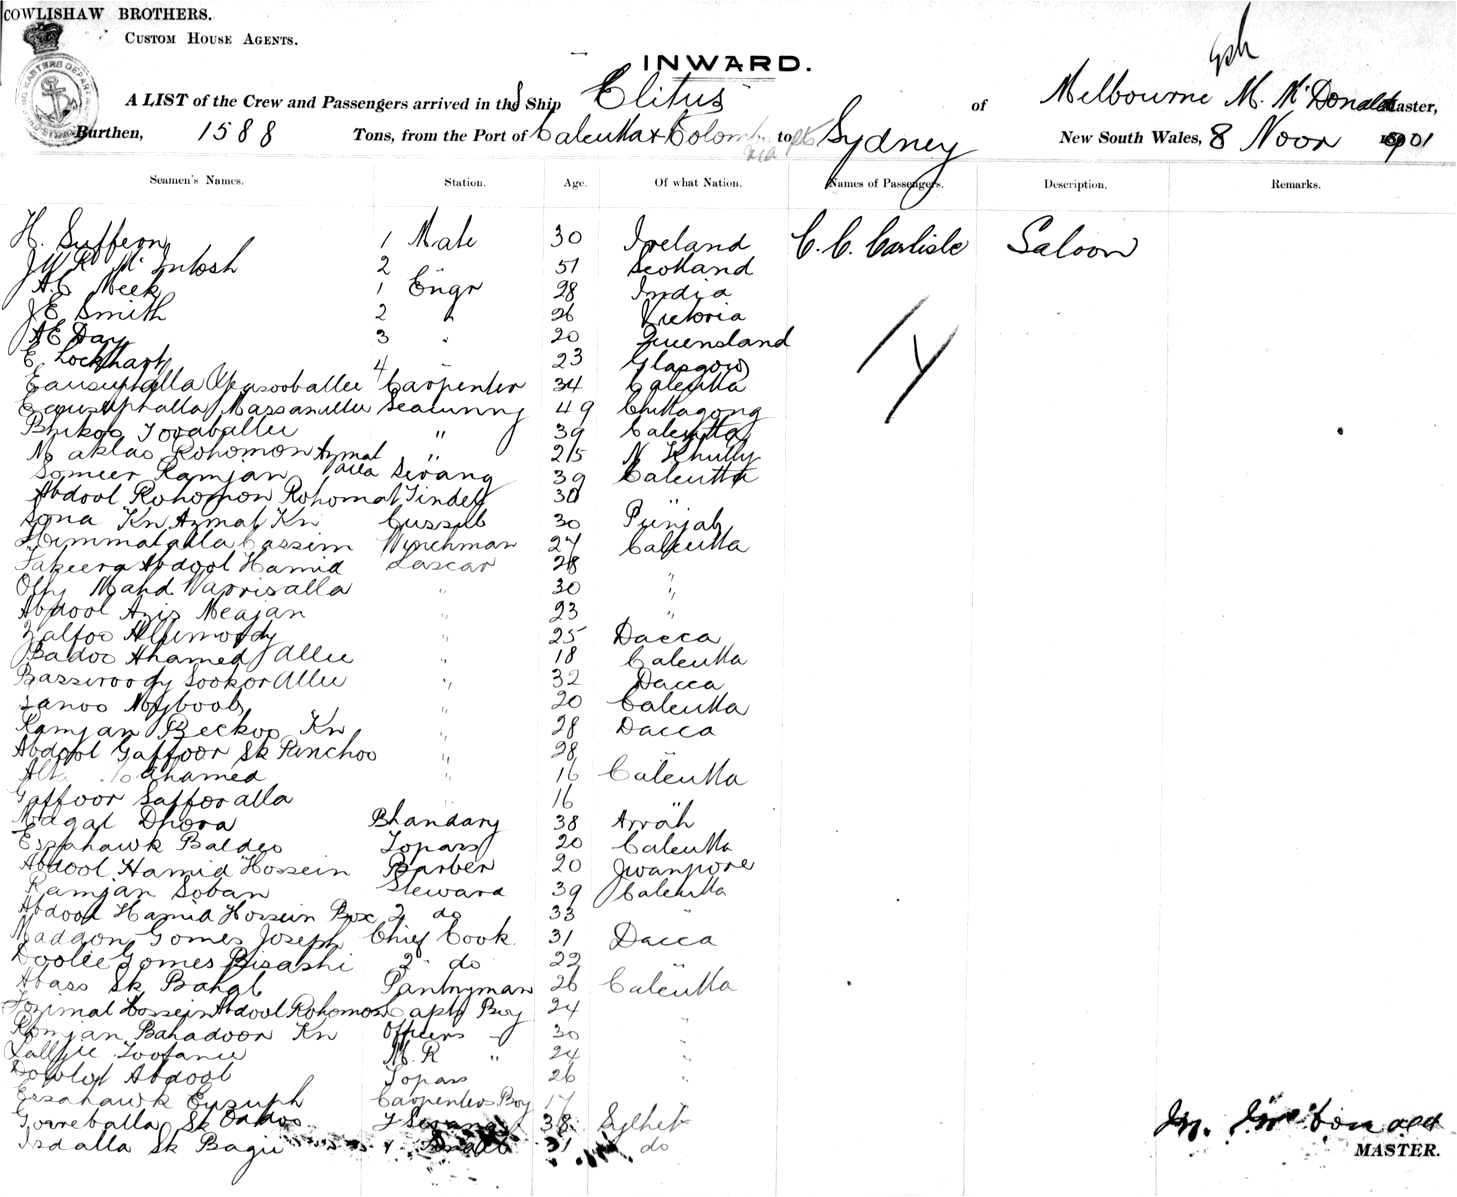 COWLISHAW BROTHERS.
CUSTOM HOUSE AGENTS.
INWARD.
A LIST of the Crew and Passengers arrived in the Ship Elitus of Melbourne M. McDonald Master,
Burthen, 1588 Tons, from the Port of Calcutta & Colombo to Sydney New South Wales, 8 Novr 1901
Seamen's Names. Station. Age. Of what Nation. Names of Passengers. Description. Remarks.
H. Suffern 1 Mate 30 Ireland C. C. Carlisle Saloon
J W R McIntosh 2 51 Scotland
A C Meek 1 Engr 28 India
J E Smith 2 " 26 Victoria
A E Day 3 " 20 Queensland
E. Lockhart 4 23 Glasgow
Carpenter 34 Calcutta
Seacunny 49 Chittagong
Bhikoo " 39 Calcutta
Rohomon Azmat alla " 25
Someer Ramjan Serang 39 Calcutta
Abdool Rohomon Rohomat Tindel 30 "
Sona Kn Azmat Kn Cussub 30 Punjab
Himmatalla Cassim Wynchman 27 Calcutta
Fakeera Abdool Hamid Lascar 28
Mahd Warrisalla " 30 "
Abdool Azis Meajan " 23 "
" 25 Dacca
Badoo Ahamed Allee " 18 Calcutta
Bassiroody Sookor Allee " 32 Dacca
" 20 Calcutta
Ramjan Beckoo Kn " 28 Dacca
Abdool Gaffoor Sk Panchoo " 28 "
Ahamed " 16 Calcutta
Gaffoor Safforalla " 16
Magat Dhora Bhandary 38 Arrah
Essahawk Baldeo Topass 20 Calcutta
Abdool Hamid Hossein Barber 20 Jwanpore
Ramjan Soban Steward 39 Calcutta
Abdool Hamid Hossein Box 2 do 33 "
Gomes Joseph Chief Cook 31 Dacca
Doolie Gomes 2 do 22 "
Abass Sk Pantryman 26 Calcutta
Hossein Abdool Rohomon Capts Boy 24
Ramjan Bahadoor Kn Officers " 30 "
Toofanie M. R " 24 "
Abdool Topass 26 "
Essahawk Eusuph Carpenters Boy 17
Sk 38 Sylhet
Isdalla Sk 31 do
M. McDonald
MASTER.